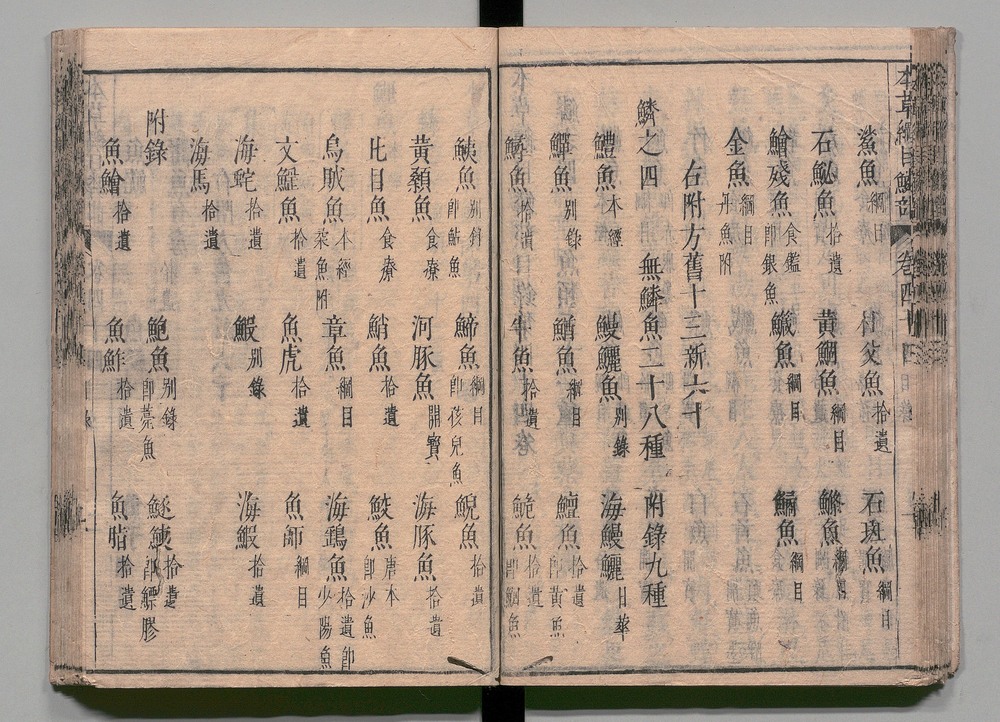 本草綱目鱗部 卷四十四 目錄
鯊魚綱目 杜父魚拾遺 石斑魚綱目
石鮅魚拾遺 黃鯝魚綱目 鰷魚綱目
鱠殘魚食鑑即銀魚 鱵魚綱目 鱊魚綱目
金魚綱目丹魚附
右附方舊十三新六十
鱗之四 無鱗魚三十八種 附錄九種
鱧魚本經 鰻鱺魚別錄 海鰻鱺日華
鱓魚別錄 鰌魚綱目 鱣魚拾遺即黃魚
鱘魚拾遺 牛魚拾遺 鮠魚拾遺即鮰魚
鮧魚別錄即鮎魚 鯑魚綱目即孩兒魚 鯢魚拾遺
黃顙魚食療 河豚魚開寶 海豚魚拾遺
比目魚食療 鮹魚拾遺 鮫魚唐本即沙魚
烏賊魚本經柔魚附 章魚綱目 海鷂魚拾遺即少陽魚
文鰩魚拾遺 魚虎拾遺 魚師綱目
海蛇拾遺 鰕別錄 海鰕拾遺
海馬拾遺
附錄 鮑魚別錄即薧魚 鱁鮧拾遺即鰾膠
魚鱠拾遺 魚鮓拾遺 魚脂拾遺